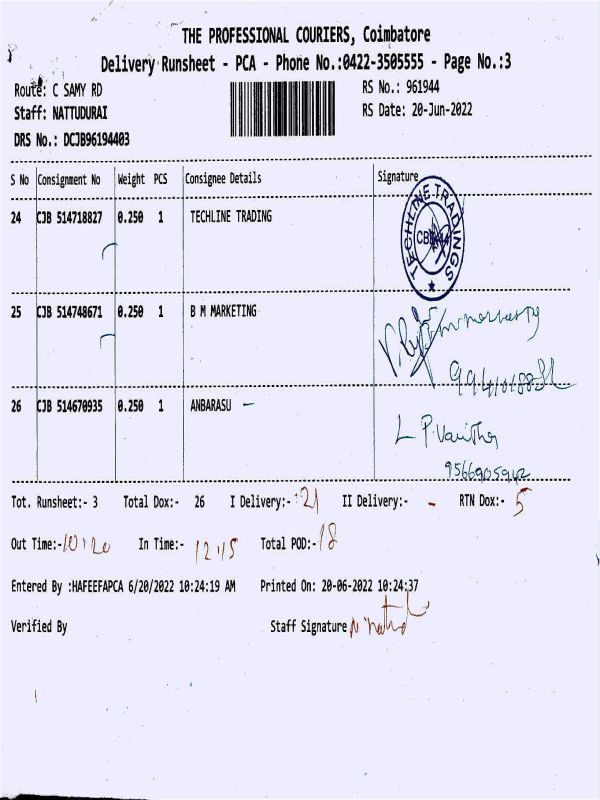 THE PROFESSIONAL COURIERS, Coimbatore
Delivery Runsheet - PCA - Phone No.:0422-3505555 - Page No.:3
Route: C SAMY RD RS No.: 961944
Staff: NATTUDURAI RS Date: 20-Jun-2022
DRS No.: DCJB96194403
S No Consignment No Weight PCS Consignee Details Signature
24 CJB 514718827 0.250 1 TECHLINE TRADING
TECHLINE TRADINGS
25 CJB 514748671 0.250 1 B M MARKETING
26 CJB 514670935 0.250 1 ANBARASU -
L P. Vanitha
9566905942
Tot. Runsheet:- 3 Total Dox:- 26 I Delivery:- 21 II Delivery:- - RTN Dox:- 5
Out Time:- 10:20 In Time:- 12:15 Total POD:- 18
Entered By :HAFEEFAPCA 6/20/2022 10:24:19 AM Printed On: 20-06-2022 10:24:37
Verified By Staff Signature